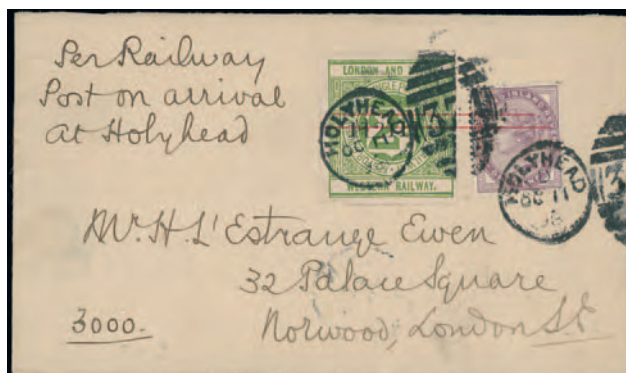 Per Railway
Post on arrival
at Holyhead
LONDON AND
RAILWAY.
HOLYHEAD
HOLYHEAD
Mr. H. L'Estrange Ewen
32 Palace Square
Norwood, London S.E.
3000.